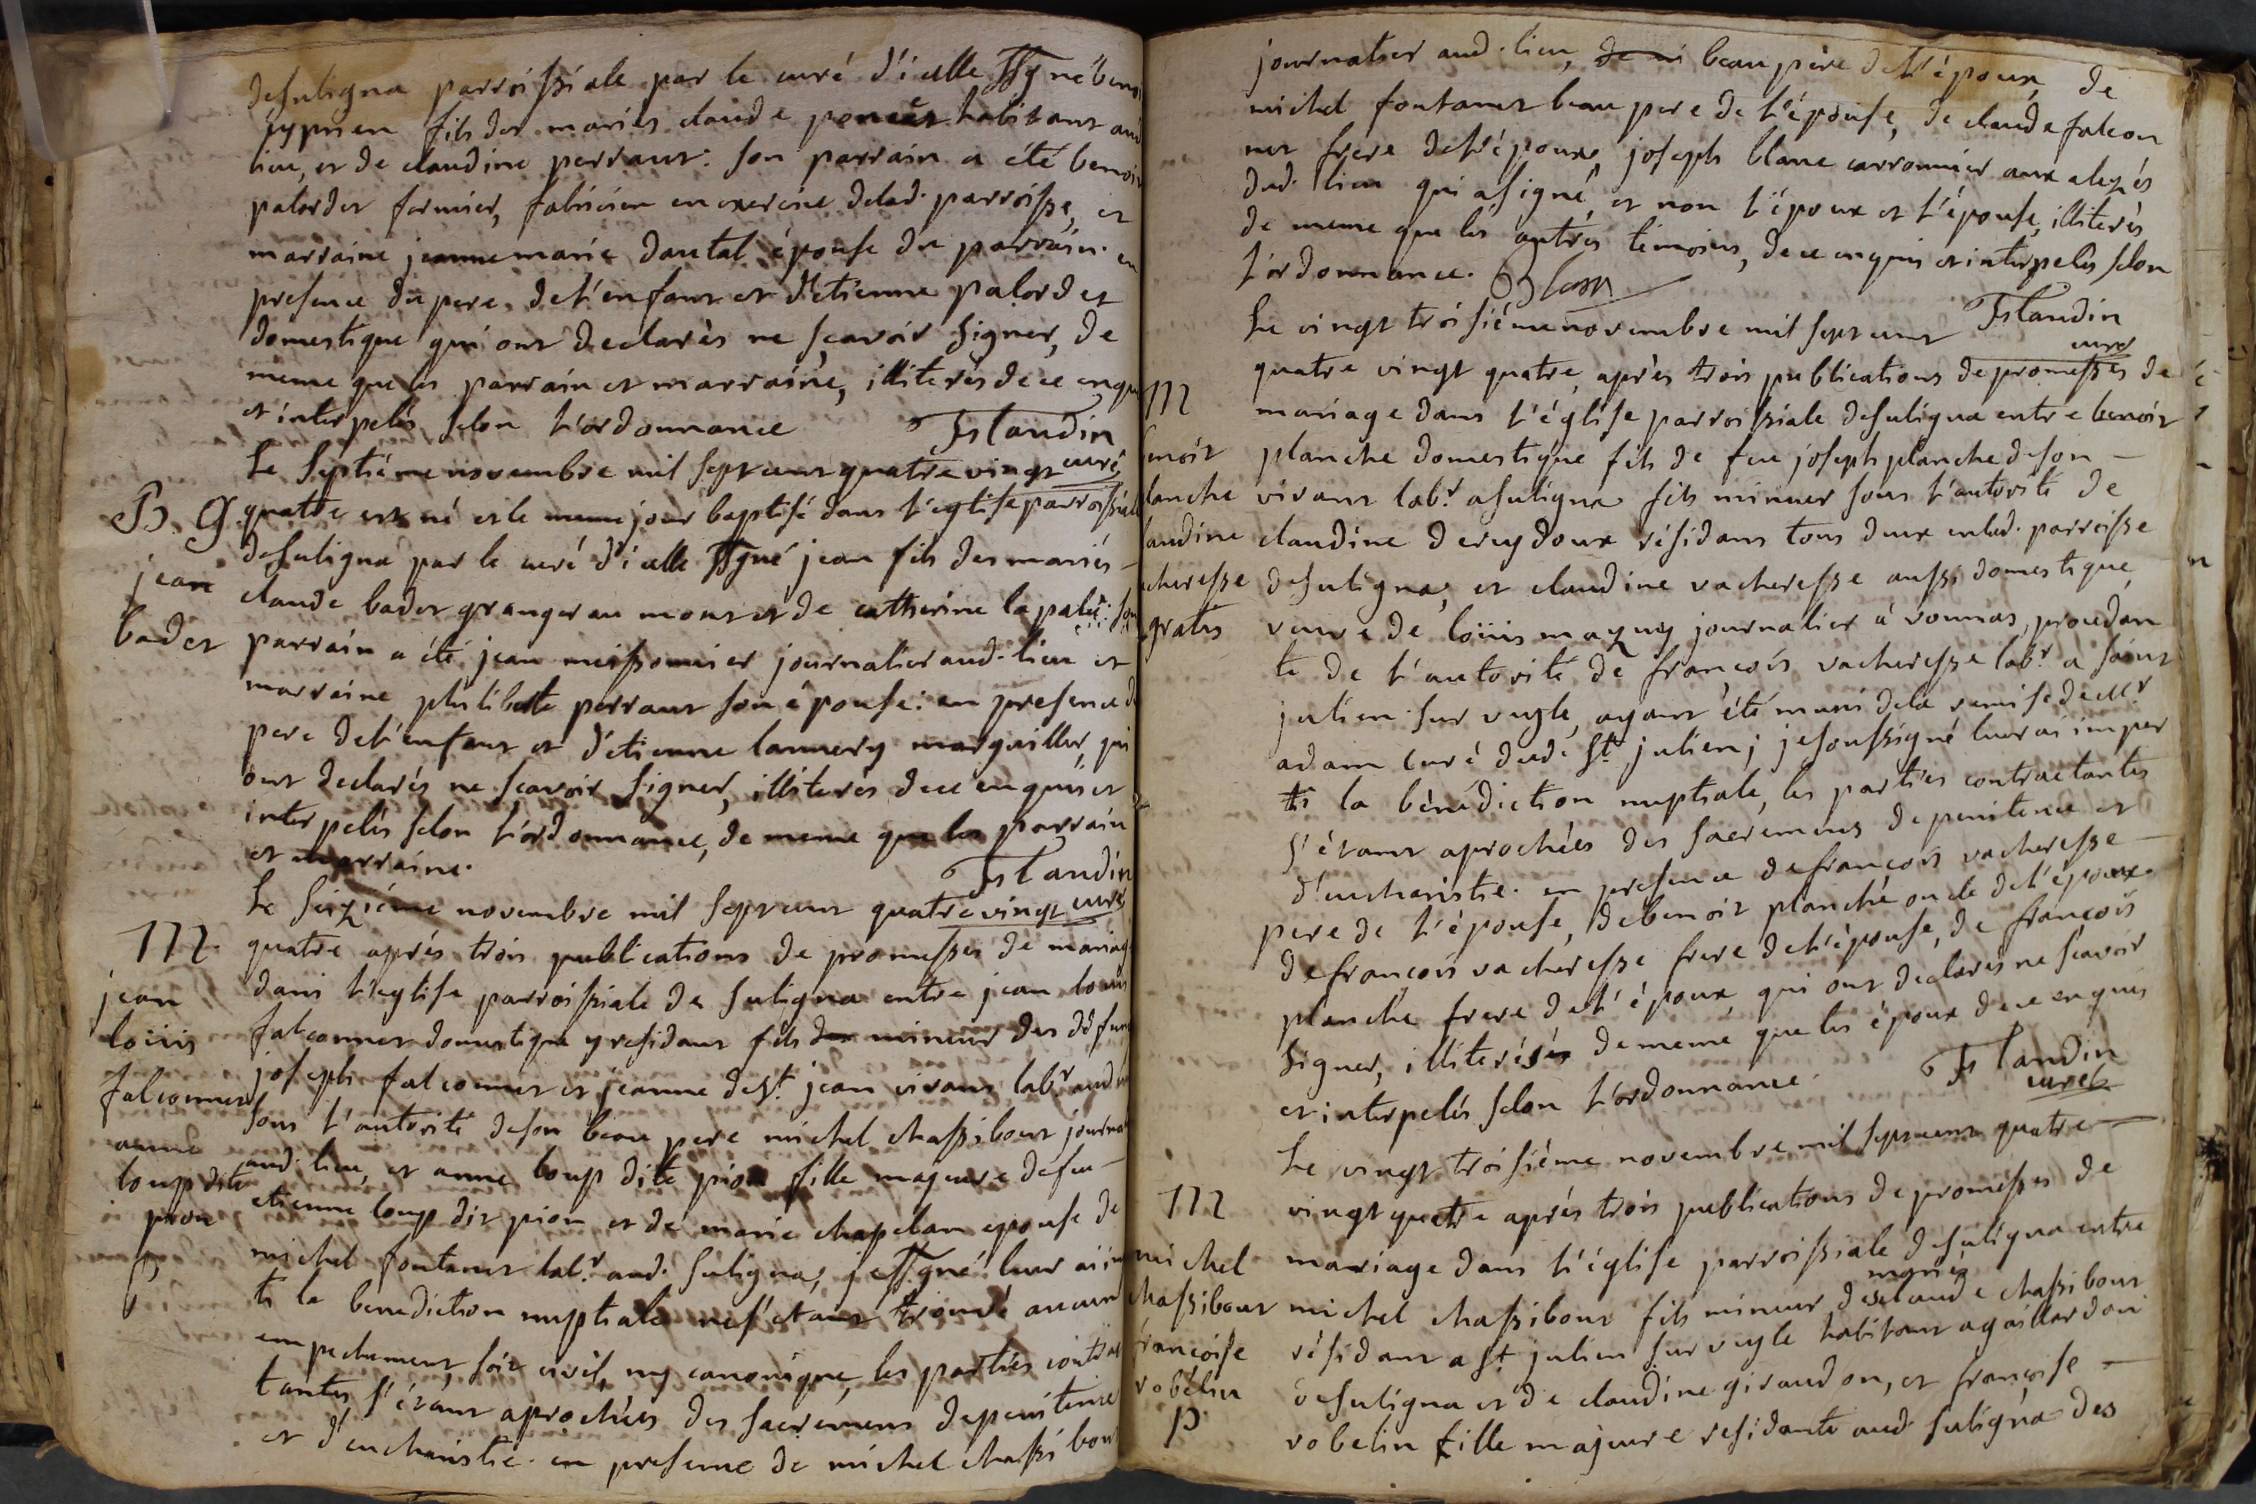 desuligna parroissiale par le curé d'icelle ssgné benoi
cyprien fils des mariés claude poncet habitant aud
lieu, et de claudine perraut: son parrain a été benoit
palordet fermier, fabricien en exercice delad. parroisse, et
marraine jeanne marie dautal épouse du parrain. en
presence du pere de l'enfant et d'etienne palordet
domestique qui ont declarès ne sçavoir signer, de
meme que les parrain et marraine, illiterés de ce enquis
et interpelés selon l'ordonnance Tslandin
curé
Le septiéme novembre mil sept cent quatre vingt
B. G. quatre est né et le meme jour baptisé dans l'eglise parroissiale
desuligna par le curé d'icelle ssgné jean fils des mariés
jean
badet
claude badet granger au mont et de catherine lapalu: son
parrain a été jean meissonnier journalier aud. lieu et
marraine philiberte perraut son épouse: en presence du
pere de l'enfant et d'etienne lannery marguiller, qui
ont declarés ne scavoir signer, illiterés de ce enquis et
interpelés selon l'ordonnance, de meme que les parrain
et marraine. Tslandin
curé
Le seizième novembre mil sept cent quatre vingt
M. quatre aprés trois publications de promesses de mariage
dans l'eglise parroissiale de suligna entre jean louis
jean
loüis
falconnet
anne
loup dite
pion
falconnet domestique y residant fils mineur des défunts
joseph falconnet et jeanne de st. jean vivant labr. aud
sous l'autorité de son beau pere michel chassibout journal
aud. lieu, et anne loup dite pion fille majeure de feu
etienne loup dit pion et de marie chapelan epouse de
michel fontanet labr. aud. suligna, je ssgné leur ai im
ti la benediction nuptiale ne s'etant trouvé aucun
empechement, soit civil, ny canonique, les parties contrac
tantes s'étant aprochées des sacremens de penitence
et d'eucharistie. en presence de michel chassibout
journalier aud. lieu, beau père de l'époux, de
michel fontanet beau pere de l'épouse, de claude falcon
net frere de l'époux, joseph blanc carronnier aux alezés
dud. lieu qui a signé et non l'époux et l'épouse, illiterés
de meme que les autres temoins, de ce enquis et interpelés selon
l'ordonnance. Blanc
Tslandin
curé
Le vingt troisiéme novembre mil sept cent
M quatre vingt quatre, après trois publications de promesses de
mariage dans l'église parroissiale desuligna entre benoit
enoit
lanche
laudine
acheresse
gratis
planche domestique fils de feu joseph planche de son
vivant labr. a suligna fils mineur sous l'autorité de
claudine deruydoux résidans tous deux en lad. parroisse
desuligna, et claudine vacheresse aussi domestique
veuve de loüis mazuy journalier à vonnas, procedan
te de l'autorité de françois vacheresse labr. a saint
julien sur veyle, ayant été muni de la remise de Mr.
adam curé dud. St. julien; je soussigné leur ai imper
ti la bénédiction nuptiale, les parties contractantes
s'étant aprochées des sacremens de penitence et
d'eucharistie. en presence de françois vacheresse
pere de l'épouse, de benoit planche oncle de l'époux
de francois vacheresse frere de l'épouse, de françois
planche frere de l'époux, qui ont declarés ne scavoir
signer, illiterés de meme que les époux de ce enquis
et interpelés selon l'ordonnance. Tslandin
curé
Le vingt troisiéme novembre mil sept cent quatre
M vingt quatre aprés trois publications de promesses de
mariage dans l'église parroissiale desuligna entre
michel
chassibout
françoise
robelin
p
mariés
michel chassibout fils mineur des claude chassibout
résidant a St. julien sur veyle habitant a gaillardon
desuligna et de claudine giraudon, et françoise
robelin fille majeure residante aud. suligna des